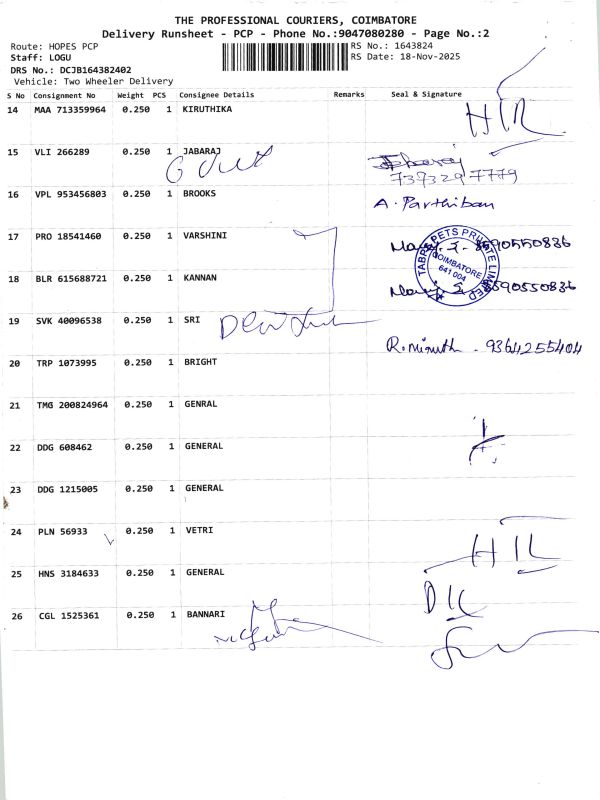 THE PROFESSIONAL COURIERS, COIMBATORE
Delivery Runsheet - PCP - Phone No.:9047080280 - Page No.:2
Route: HOPES PCP
RS No.: 1643824
Staff: LOGU
RS Date: 18-Nov-2025
DRS No.: DCJB164382402
Vehicle: Two Wheeler Delivery
S No Consignment No Weight PCS Consignee Details Remarks Seal & Signature
14 MAA 713359964 0.250 1 KIRUTHIKA
15 VLI 266289 0.250 1 JABARAJ
737329 7779
16 VPL 953456803 0.250 1 BROOKS A. Parthiban
17 PRO 18541460 0.250 1 VARSHINI 8590550836
TABP PETS PRIVATE LIMITED
COIMBATORE
641 004
18 BLR 615688721 0.250 1 KANNAN 8590550836
19 SVK 40096538 0.250 1 SRI
R. - 9364255404
20 TRP 1073995 0.250 1 BRIGHT
21 TMG 200824964 0.250 1 GENRAL
22 DDG 608462 0.250 1 GENERAL
23 DDG 1215005 0.250 1 GENERAL
24 PLN 56933 0.250 1 VETRI
25 HNS 3184633 0.250 1 GENERAL
26 CGL 1525361 0.250 1 BANNARI